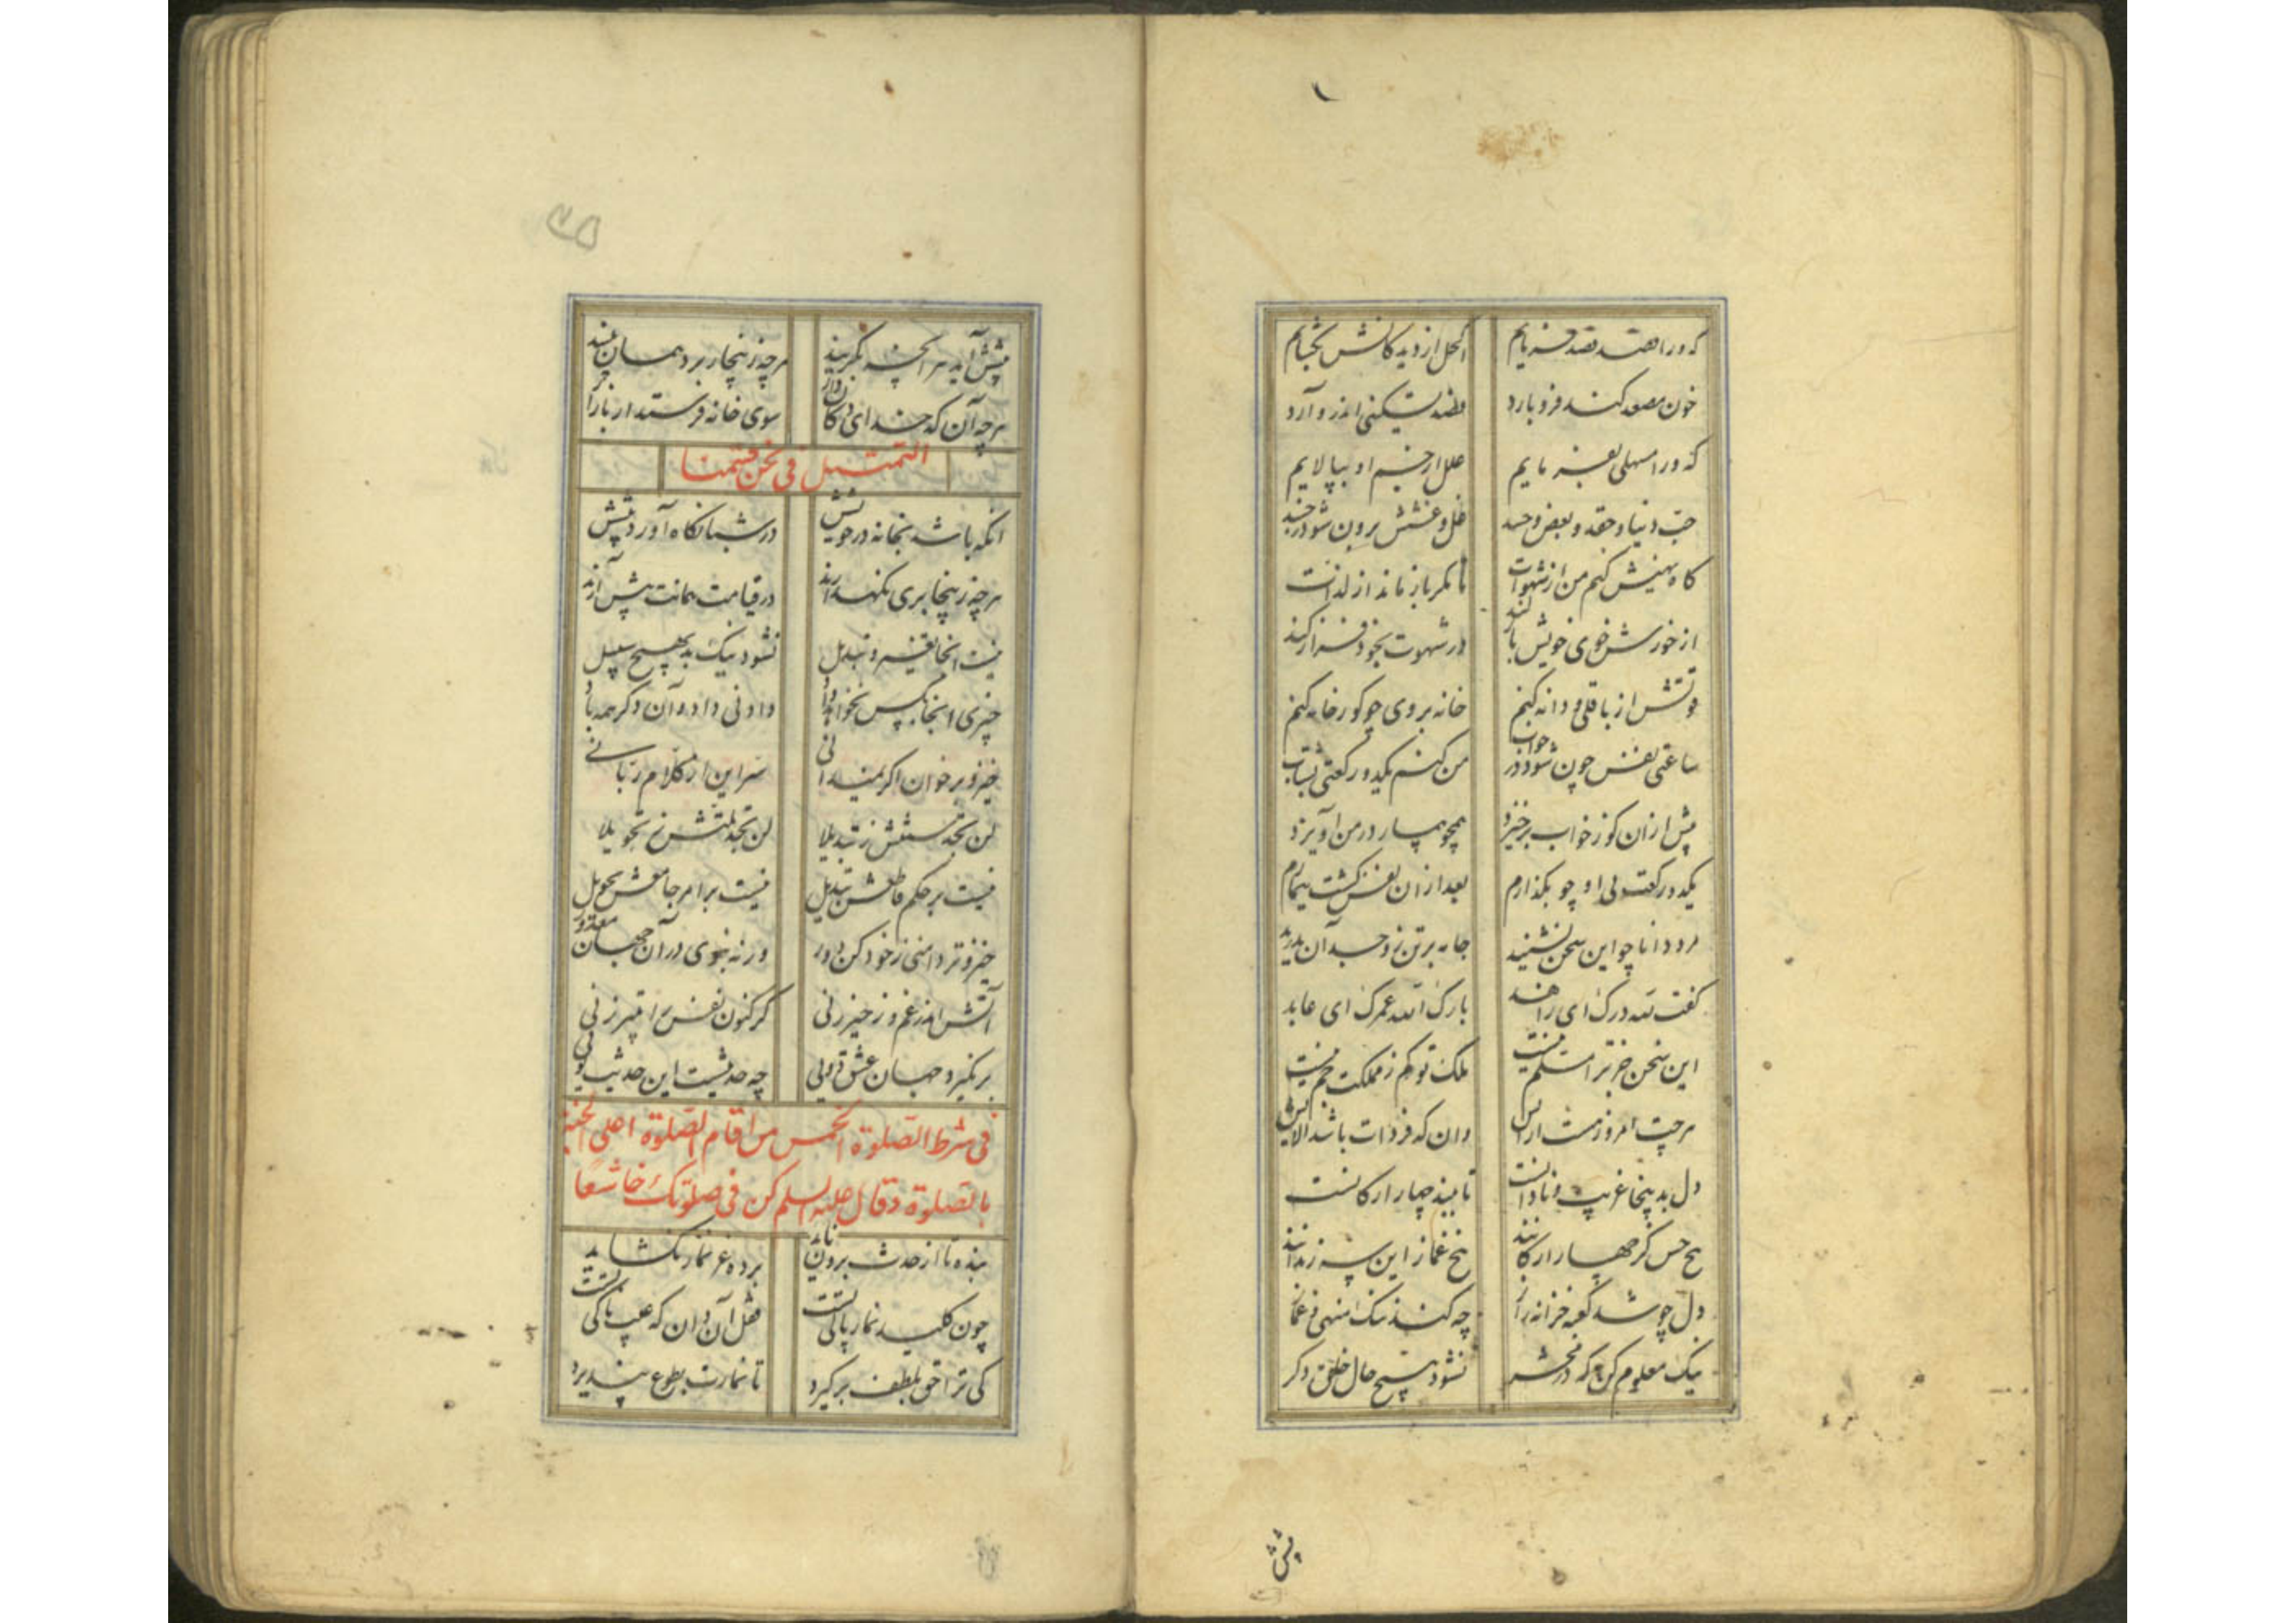 که ورا قصد فصد فرمایم
اکحل از دیدگانش بگشایم
خون مصعد کند فرو بارد
فصد تسکینی اندرو آرد
که ورا مسهلی بفرمایم
علل از جسم او بپالایم
حب دنیا و حقد و بغض و حسد
غل و غشش برون شود ز جسد
گاه نهیش کنم من از شهوات
تا مگر باز ماند از لذات
از خورش خوی خویش باز کند
در شهوت بخود فراز کند
قوتش از باقلی دو دانه کنم
خانه بر وی چو گورخانه کنم
ساعتی نفس چون شود در خواب
من کنم یکدو رکعتی بشتاب
پیش از آن کو ز خواب برخیزد
همچو بیمار در من آویزد
یکدو رکعت بی او چو بگذارم
بعد از آن نفس گشت بیمارم
مرد دانا چو این سخن بشنید
جامه بر تن ز وجد آن بدرید
گفت لله درک ای زاهد
بارک الله عمرک ای عابد
این سخن جز ترا مسلم نیست
ملک تو کم ز مملکت جم نیست
هر چت امروز هست آرایش
وان که فردات باشد آلایش
دل بدینجا غریب و نادانست
تا ببند چهار ارکانست
پنج حس کز چهار ارکانند
پنج غماز این سه زندانند
دل چو شد کعبه خزانه راز
چه کند ننگ منهی و غماز
نیک معلوم کن که در محشر
نشود هیچ حال خلق دگر
پیش
پیش آید هر آنچه بگزیند
هرچه زینجا برد همان بیند
هرچه آن کدخدای دکان دار
سوی خانه فرستد از بازار
التمثیل فی نحن قسمنا
آنکه باشد بخانه در خویش
در شبانگاه آورد پیش
هرچه زینجا بری نگهدارند
در قیامت همانت پیش آرند
نیست آنجا تغیر و تبدیل
نشود نیک بد بهیچ سبیل
چیزی آنجا بکس نخواهد داد
دادنی داد و آن دگر همه باد
خیز و بر خوان اگر نمیدانی
سر این از کلام ربانی
لن تجد سنتش ز تبدیلا
لن تجد ملتش ز تحویلا
نیست بر حکم قاطعش تبدیل
نیست بر امر جامعش تحویل
خیز و تر دامنی ز خود کن دور
ورنه نبوی در آن جهان معذور
آتش اندر غم و زحیر زنی
گر کنون نفس را تبیر زنی
برنگیرد جهان عشق دویی
چه حدیثیست این حدیث تویی
فی شرط الصلوة الخمس من اقام الصلوة اهلی الجنة
بالصلوة و قال علیه السلم کن فی صلوتک خاشعا
بنده تا از حدث برون ناید
پرده عز نماز نگشاید
چون کلید نماز پاکی تست
قفل آن دان که عیب پاکی تست
کی ترا حق بلطف برگیرد
تا نمازت بطوع بپذیرد